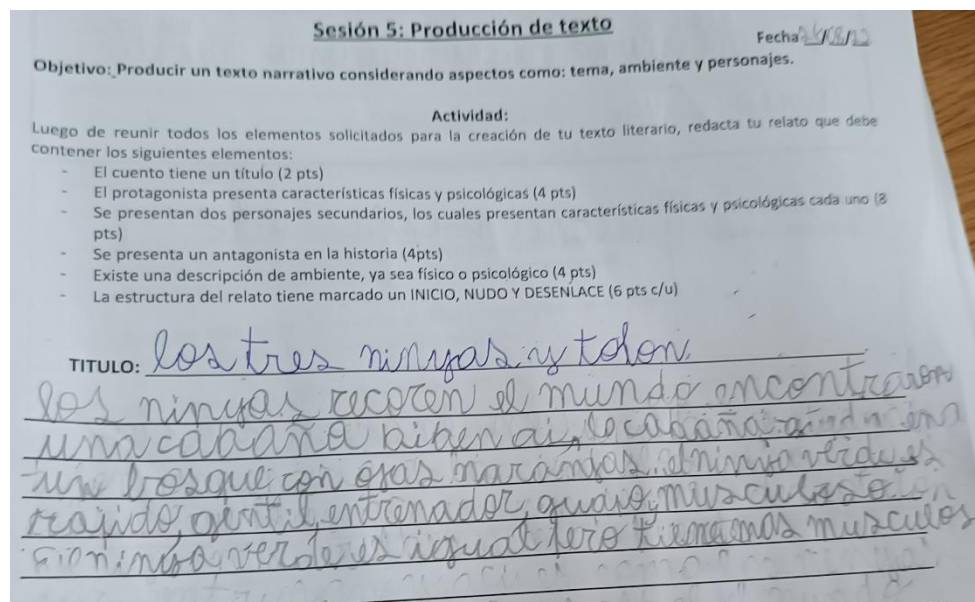 Sesión 5: Producción de texto
Fecha
Objetivo: Producir un texto narrativo considerando aspectos como: tema, ambiente y personajes.
Actividad:
Luego de reunir todos los elementos solicitados para la creación de tu texto literario, redacta tu relato que debe
contener los siguientes elementos:
- El cuento tiene un título (2 pts)
- El protagonista presenta características físicas y psicológicas (4 pts)
- Se presentan dos personajes secundarios, los cuales presentan características físicas y psicológicas cada uno (8
pts)
- Se presenta un antagonista en la historia (4pts)
- Existe una descripción de ambiente, ya sea físico o psicológico (4 pts)
- La estructura del relato tiene marcado un INICIO, NUDO Y DESENLACE (6 pts c/u)
TITULO: los tres ninyas y tolon
los ninyas recoren el mundo encontraron
una cabaña biben ai, la cabaña en
un bosque con ojas naranjas. el ninya verde es
rapido, gentil, entrenador, guapo, musculoso
ninya verde es igual pero tiene mas musculos